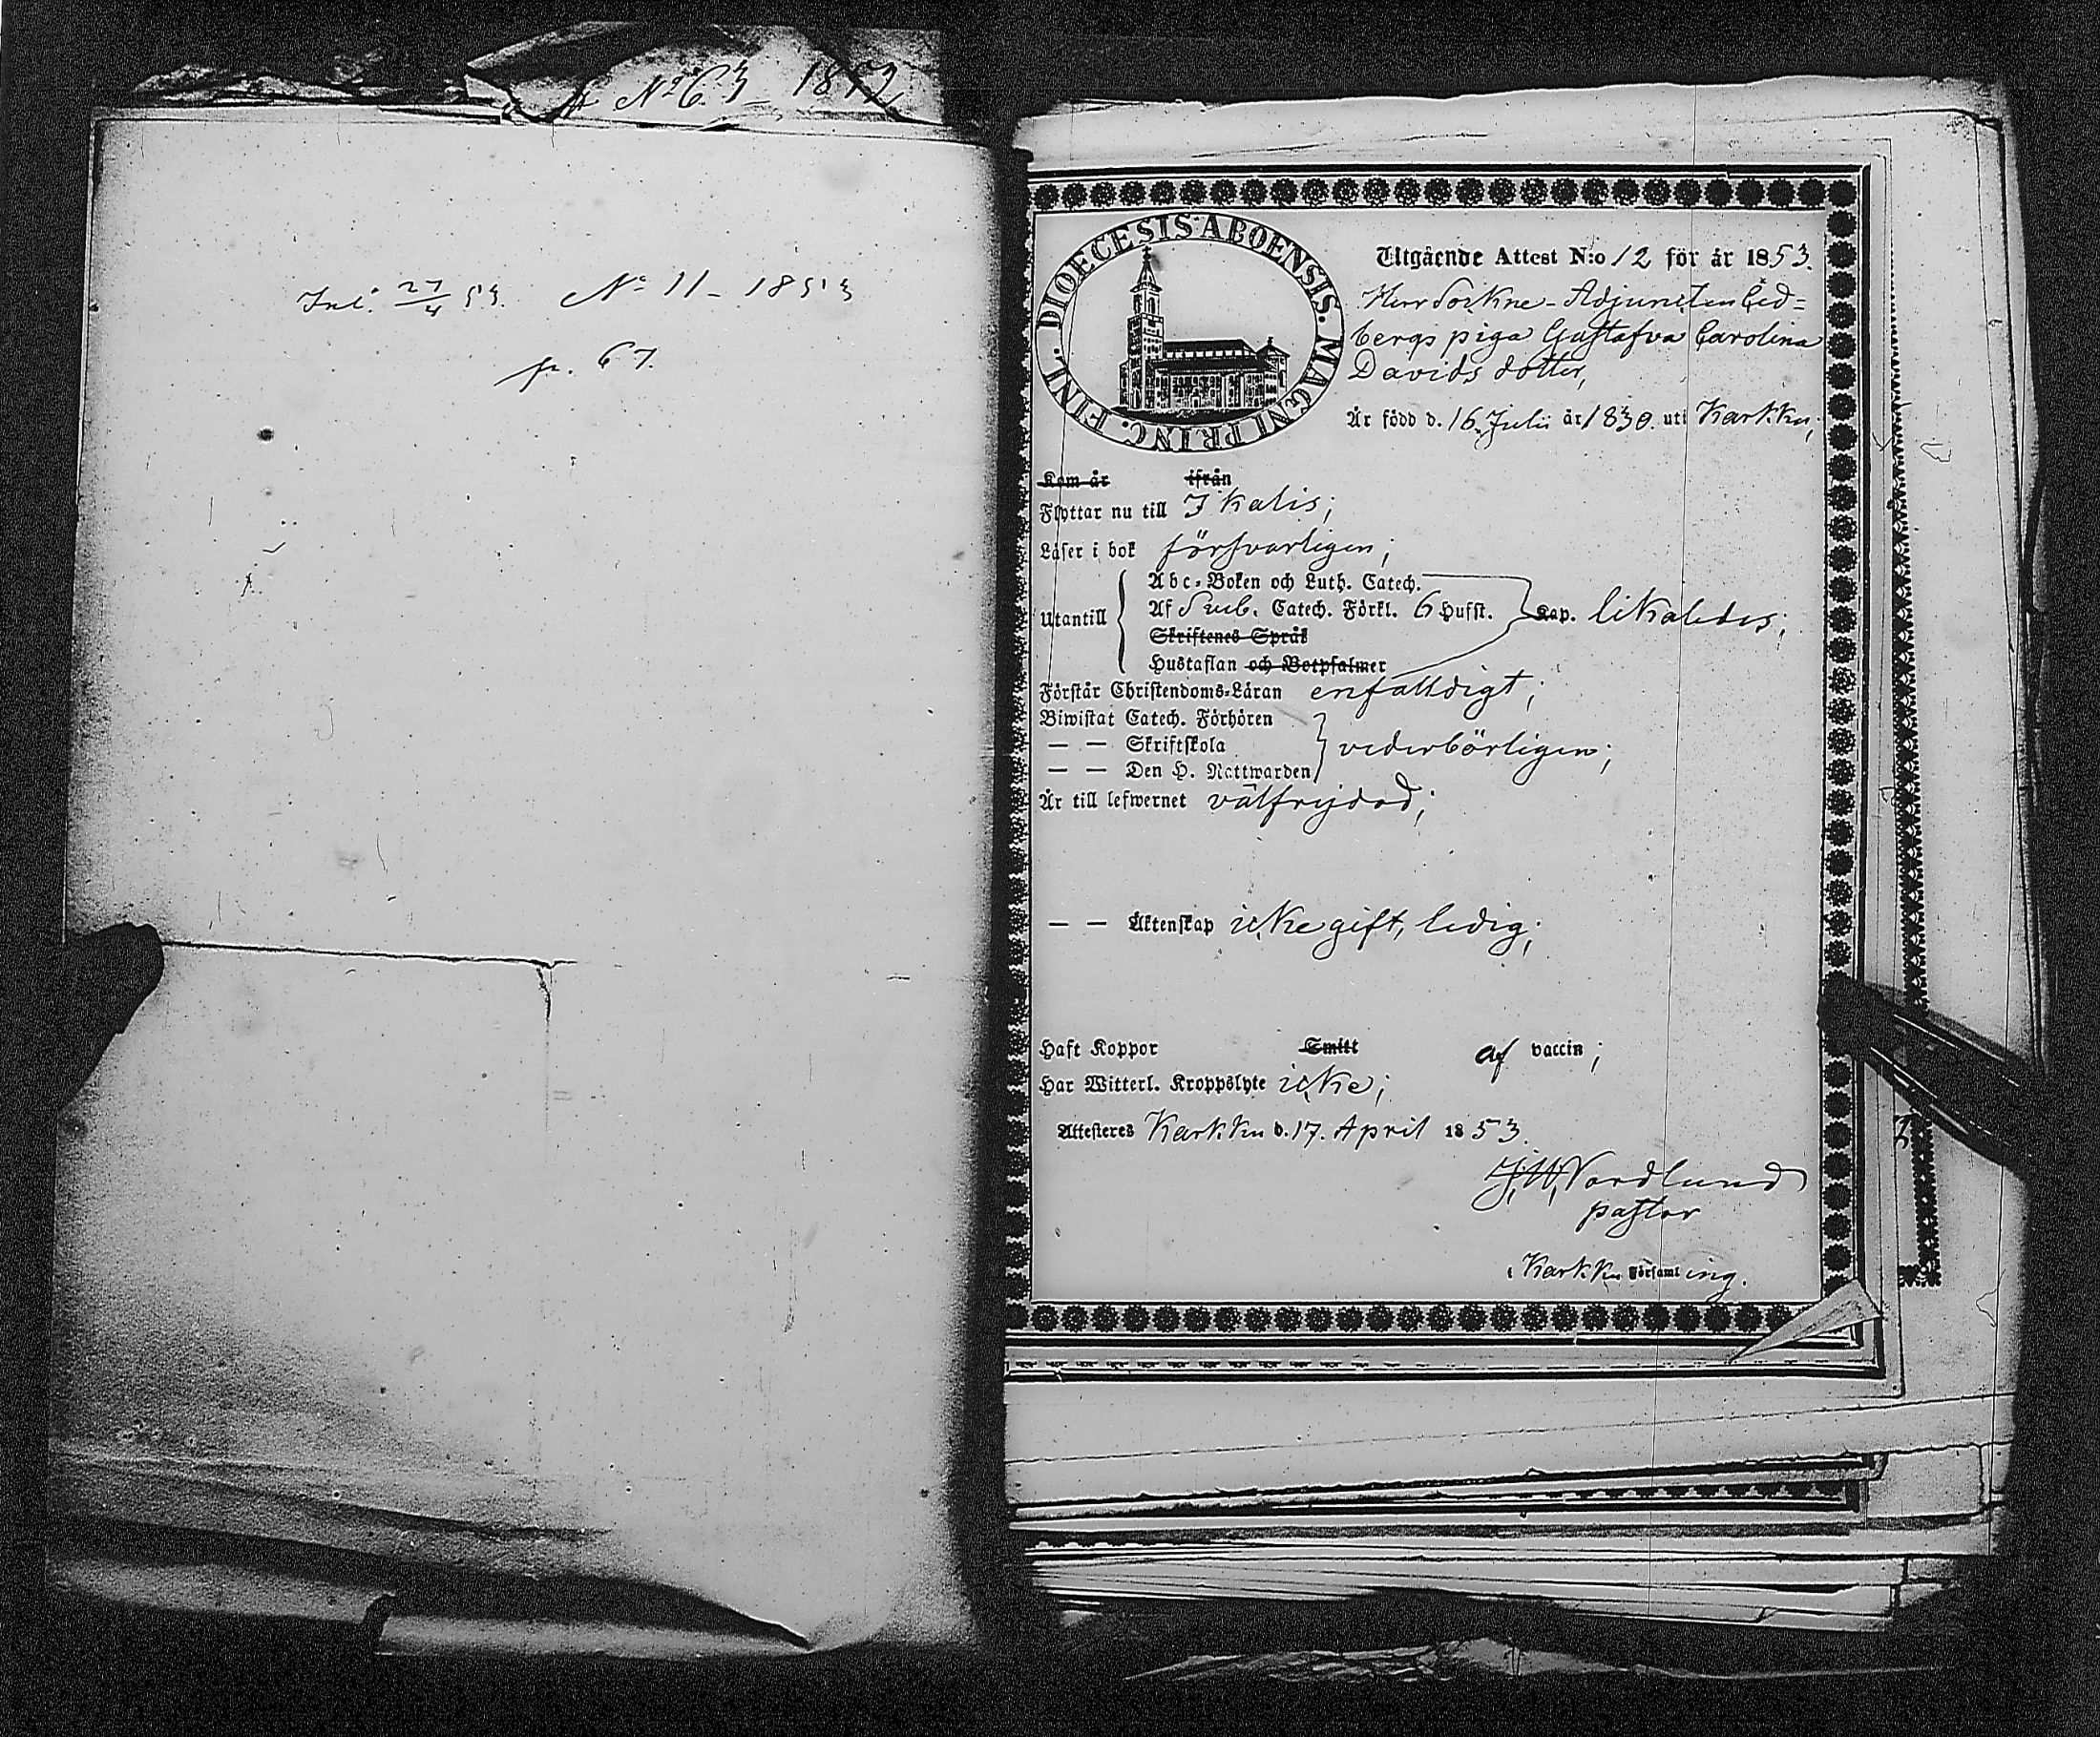 No 63 1852
Inl. 27/4 53. No 11 - 1853
p. 67.
DIOECESIS ABOENSIS. MAGNI PRINC. FINL.
Utgående Attest N:o 12 för år 1853.
Herr Sockne-Adjuncten Ced=
bergs piga Gustafva Carolina
Davids dotter,
Är född d. 16. Julii år 1830. uti Karkku;
Kom år ifrån
Flyttar nu till Ikalis;
Läser i bok försvarligen;
Abc-Boken och Luth. Catech.
Utantill Af Sveb. Catech. Förkl. 6 Hufst. Kap. likaledes;
Skriftenes Språk
Hustaflan och Botpsalmer
Förstår Christendoms-Läran enfalldigt;
Biwistat Catech. Förhören
— — Skriftskola vederbörligen;
— — Den H. Nattwarden
Är till lefwernet välfrejdad;
— — Äktenskap icke gift, ledig;
Haft Koppor Smitt af vaccin;
Har Witterl. Kroppslyte icke;
Attesteras Karkku d. 17. April 1853.
J. W. Nordlund
pastor
i Karkku Församling.